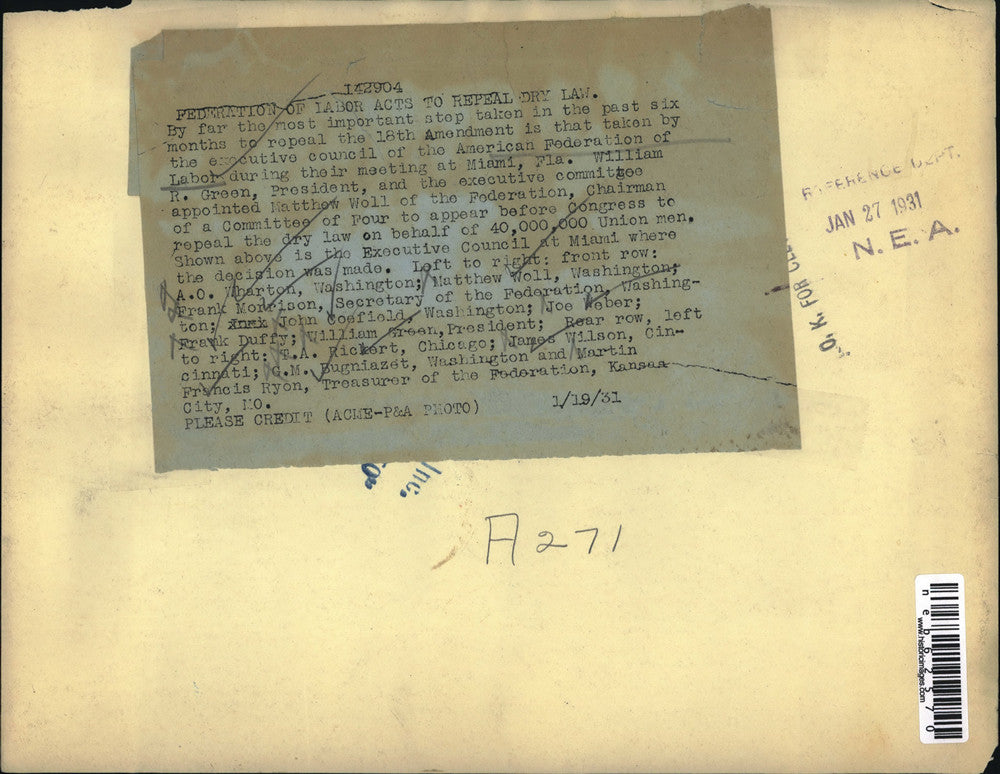 142904
FEDERATION OF LABOR ACTS TO REPEAL DRY LAW.
By far the most important step taken in the past six
months to repeal the 18th Amendment is that taken by
the executive council of the American Federation of
Labor during their meeting at Miami, Fla. William
R. Green, President, and the executive committee
appointed Matthew Woll of the Federation, Chairman
of a Committee of Four to appear before Congress to
repeal the dry law on behalf of 40,000,000 Union men.
Shown above is the Executive Council at Miami where
the decision was made. Left to right: front row:
A.O. Wharton, Washington; Matthew Woll, Washington;
Frank Morrison, Secretary of the Federation, Washing-
ton; John Coefield, Washington; Joe Weber;
Frank Duffy; William Green, President; Rear row, left
to right: T.A. Rickert, Chicago; James Wilson, Cin-
cinnati; G.M. Bugniazet, Washington and Martin
Francis Ryon, Treasurer of the Federation, Kansas
City, MO.
PLEASE CREDIT (ACME-P&A PHOTO) 1/19/31
REFERENCE DEPT.
JAN 27 1931
N. E. A.
O. K. FOR
Inc.
A271
neb62570
www.historicimages.com